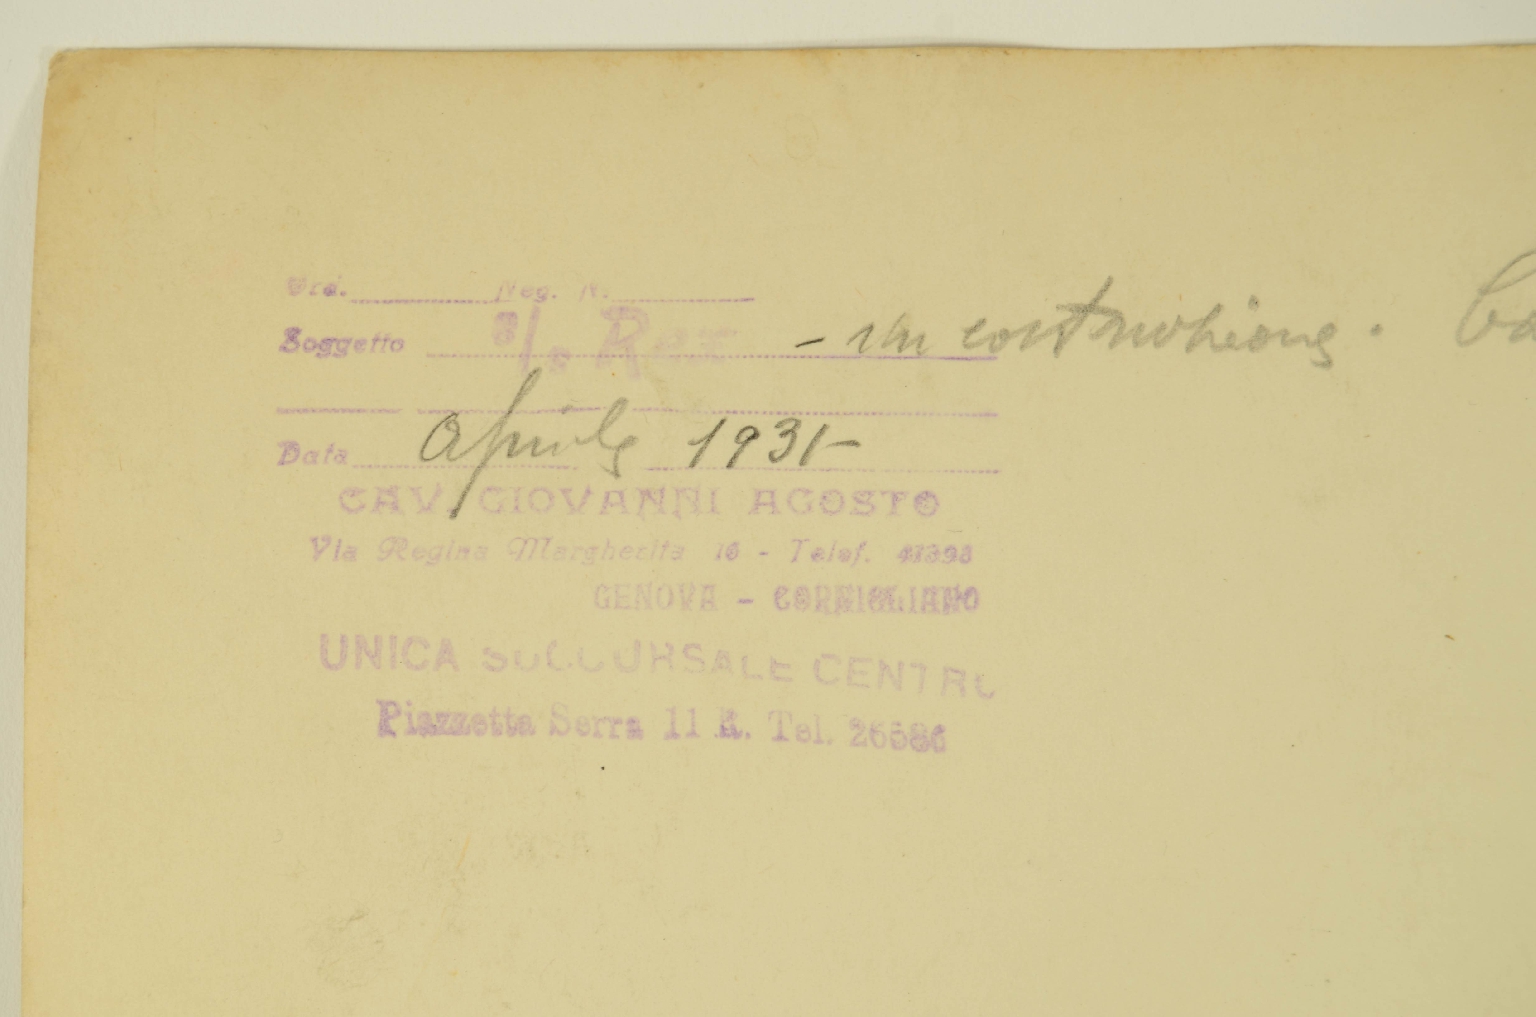 Ord. Neg. N.
Soggetto S/S Rex - in costruzione. Ca
Data Aprile 1931-
CAV. GIOVANNI AGOSTO
Via Regina Margherita 16 - Telef. 41393
GENOVA - CORNIGLIANO
UNICA SUCCURSALE CENTRO
Piazzetta Serra 11 R. Tel. 26586